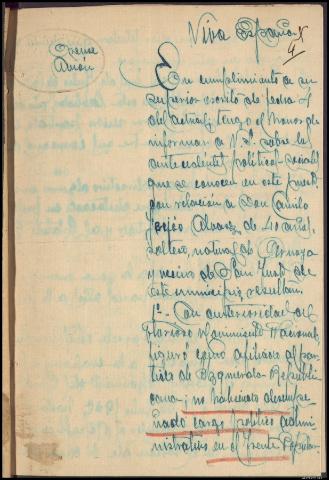 Viva España
En cumplimiento a su
superior escrito de fecha 4
del actual, tengo el honor de
informar a V.S. sobre los
antecedentes político-sociales
que se conocen en este puesto
con relación a Don Camilo
Álvarez, de 40 años,
soltero, natural de
y vecino de San Juan de
este municipio, resultan:
1º- Con anterioridad al
Glorioso Movimiento Nacional,
figuró como afiliado al par-
tido de Izquierda Republi-
cana, no habiendo desempe-
ñado cargo político admi-
nistrativo en el Frente Popular